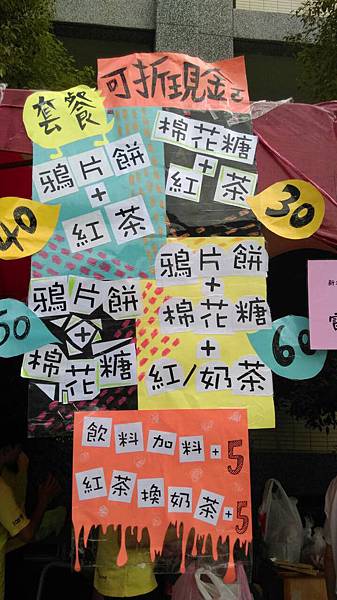 可折現金
套餐
鴉片餅
+
紅茶
40
棉花糖
+
紅茶
30
鴉片餅
+
棉花糖
50
鴉片餅
+
棉花糖
+
紅/奶茶
60
飲料加料+5
紅茶換奶茶+5